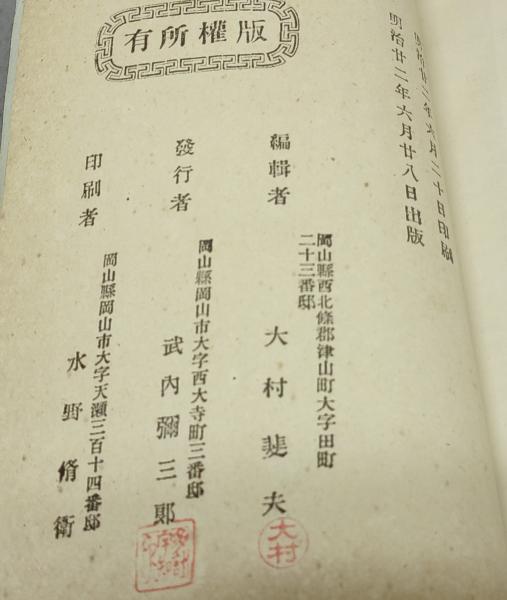 明治廿二年六月二十日印刷
明治廿二年六月廿八日出版
版權所有
編輯者
岡山縣西北條郡津山町大字田町
二十三番邸
大村斐夫
大村
發行者
岡山縣岡山市大字西大寺町三番邸
武內彌三郎
印刷者
岡山縣岡山市大字天瀬三百十四番邸
水野脩衛